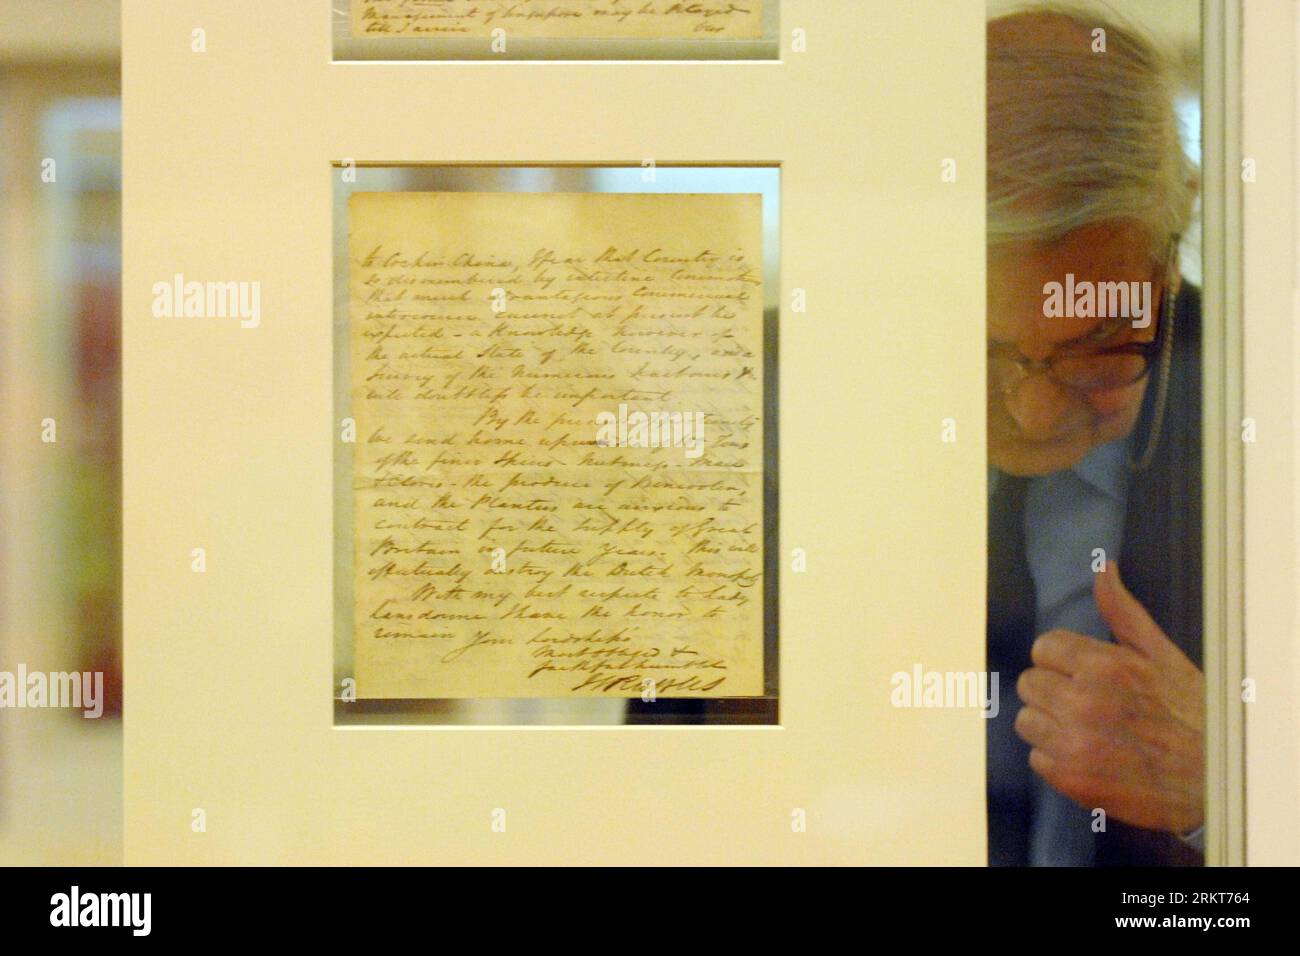 Management of Singapore may be delayed
till I arrive
to Cochin China, I fear that Country is
so dismembered by intestine Commotions
that much advantageous Commercial
intercourse cannot at present be
expected - a Knowledge however of
the actual State of the Country, and a
Survey of the Numerous Harbours &c
will doubtless be important
By the present opportunity
we send home upwards of Tons
of the finer Spices - Nutmegs - Mace
& Cloves - the produce of Bencoolen,
and the Planters are anxious to
contract for the Supply of Great
Britain in future Years. This will
effectually destroy the Dutch Monopoly
With my best respects to Lady
Lansdowne I have the honor to
remain Your Lordship's
Most obliged &
faithful humble
T S Raffles
alamy
a
alamy
Image ID: 2RKT764
www.alamy.com